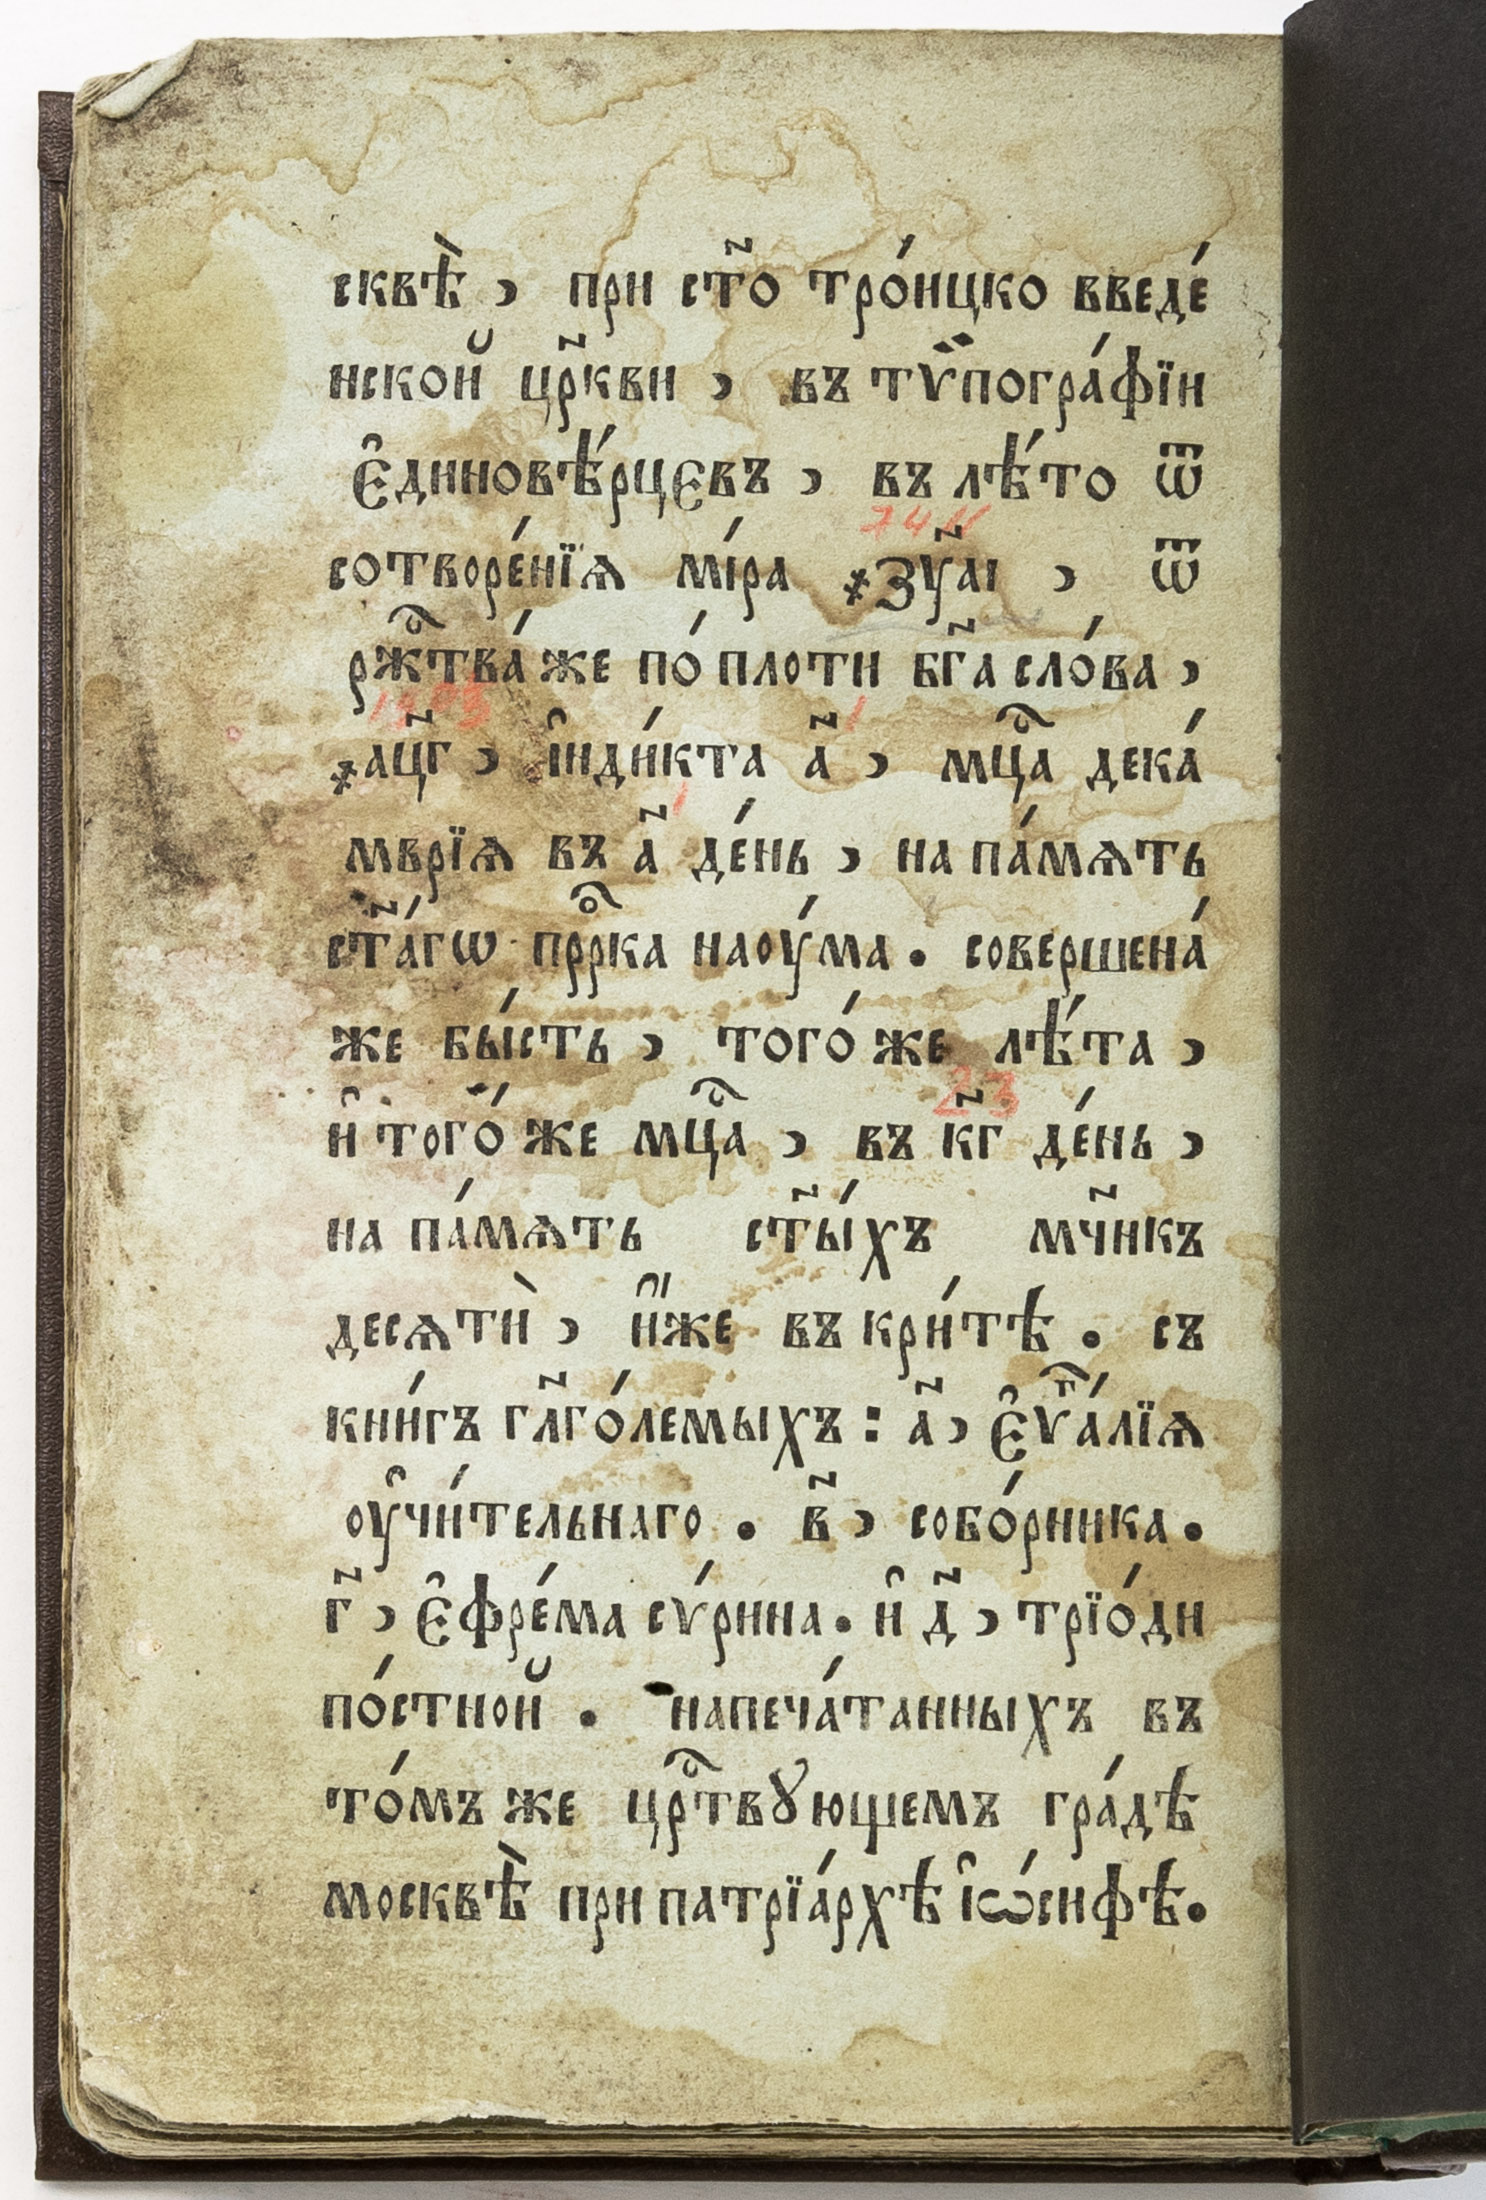 сквѣ̀ , при ст҃о тро́ицко введе́
нской цр҃кви , въ тѷпогра́фїи
є҆диновѣ́рцєвъ , въ лѣ́то ѿ
7411
сотворе́нїѧ мі́ра ҂зу҃аі , ѿ
рж҇тва́ же по́ плоти бг҃а сло́ва ,
1903 1
҂ац҃г , і҆нди́кта а҃ , мц҇а дека́
1
мврїѧ въ а҃ де́нь , на па́мѧть
ст҃а́гѡ прⷪ҇рка наоу́ма . совершена́
же бы́сть , того́ же лѣ́та ,
23
и҆ того́ же мц҇а , въ к҃г де́нь ,
на па́мѧть ст҃ы́хъ мч҃нкъ
десѧтѝ , и҆́же въ кри́тѣ . съ
кни́гъ гл҃го́лемыхъ : а҃ , є҆ѵⷢ҇а́лїѧ
оу҆чи́тельнаго . в҃ , собо́рника .
г҃ , є҆фре́ма сѵ́рина . и҆ д҃ , трїо́ди
по́стной . напеча́танныхъ въ
то́мъ же црⷭ҇твꙋющемъ гра́дѣ
москвѣ̀ при патрїа́рхѣ і҆ѡ́сифѣ .